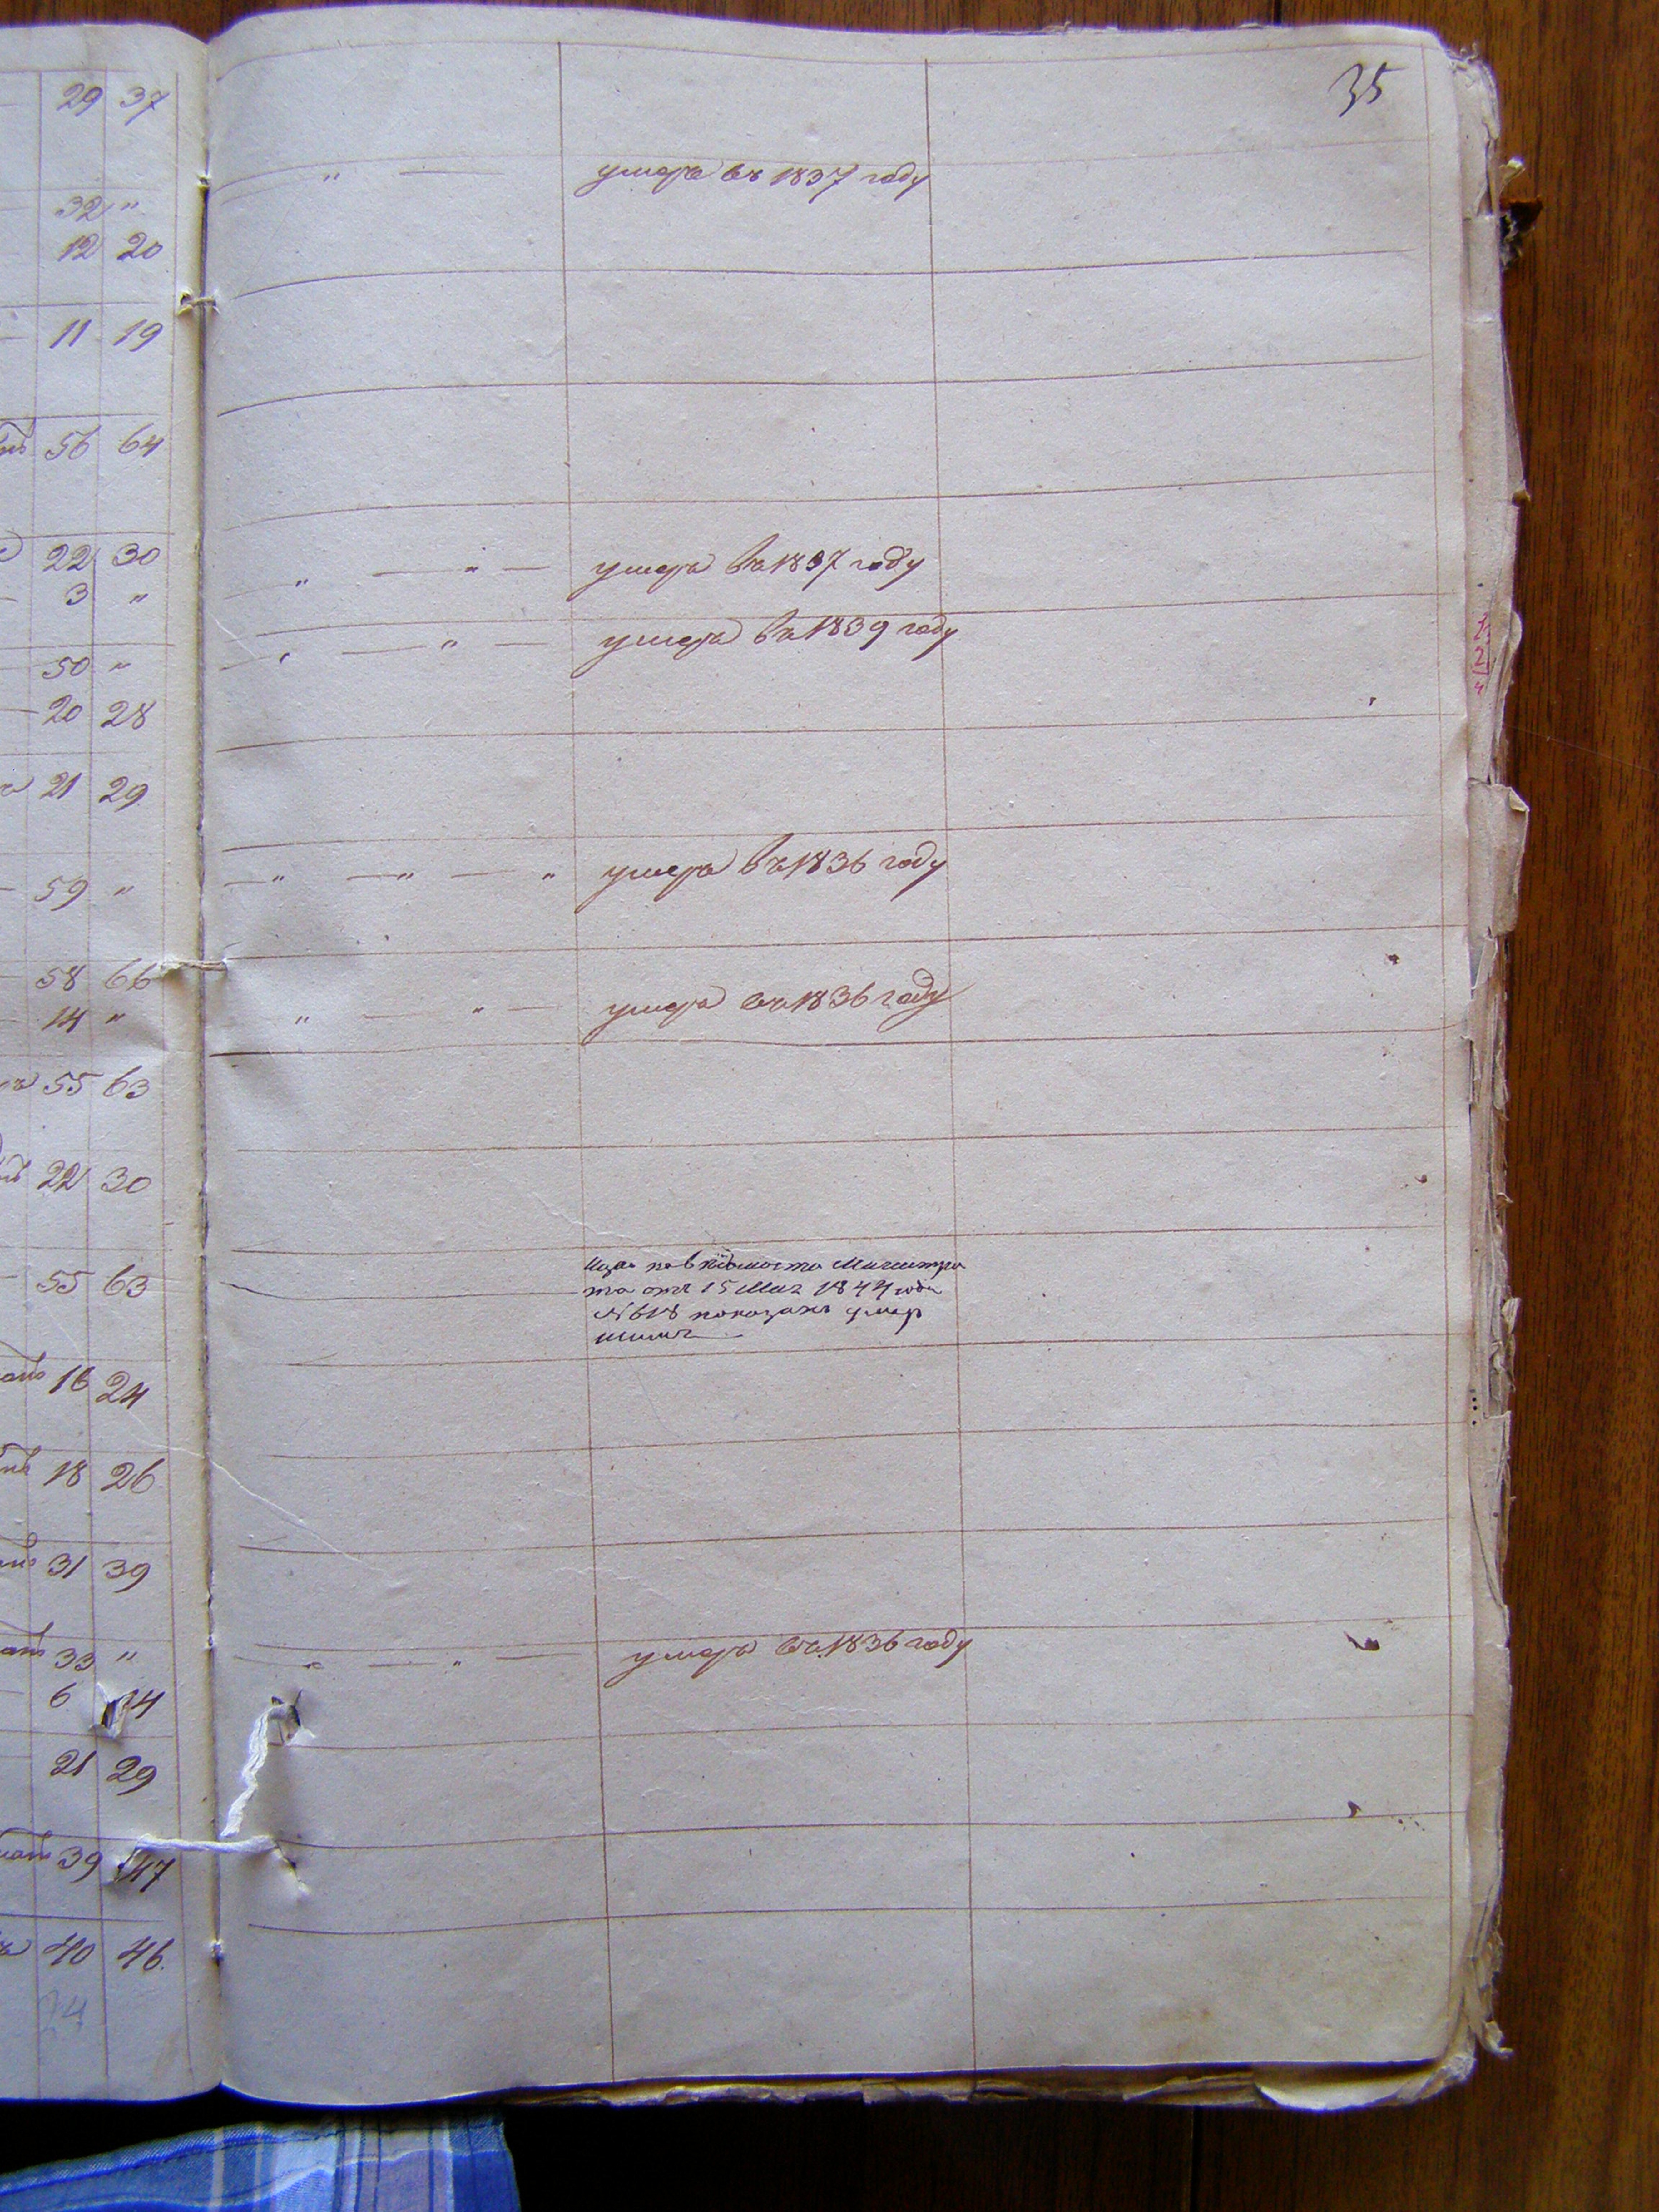 35
29 37
" — умеръ въ 1837 году
32 "
12 20
11 19
56 64
22 30
3 " " — " — умеръ въ 1837 году
50 " " — " — умеръ въ 1839 году
20 28
21 29
59 " — " — " — " умеръ въ 1836 году
58 66
14 " " — " — умеръ въ 1836 году
55 63
22 30
55 63
по вѣдомости Магистра
та отъ 15 Мая 1844 года
№ 618 показанъ умер
шимъ
16 24
18 26
31 39
33 " " — " — умеръ въ 1836 году
6 14
21 29
39 47
40 46.
24